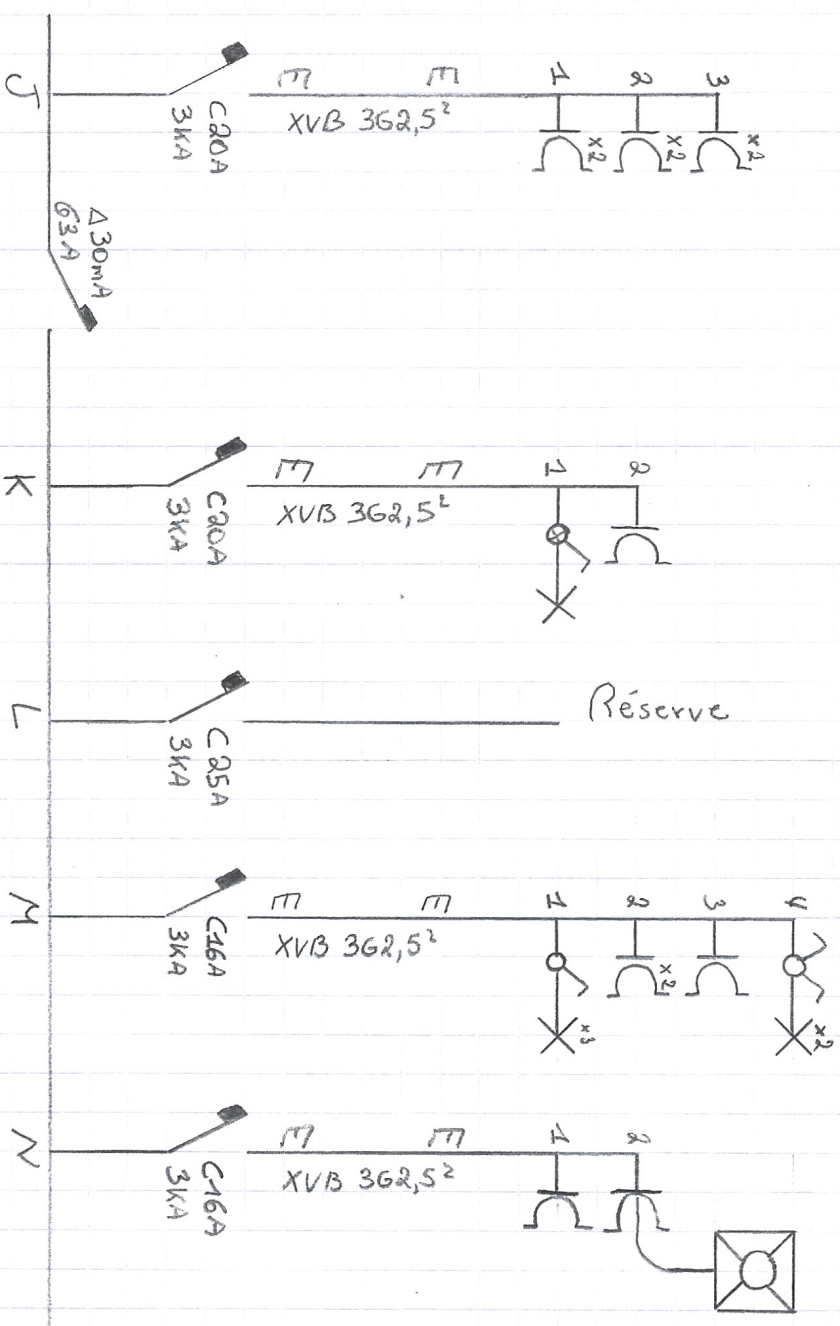 J
C20A
3KA
XVB 3G2,5²
1
2
3
x2
x2
x2
Δ30mA
63A
K
C20A
3KA
XVB 3G2,5²
1
2
L
C25A
3KA
Réserve
M
C16A
3KA
XVB 3G2,5²
1
2
3
4
x3
x2
x2
N
C16A
3KA
XVB 3G2,5²
1
2